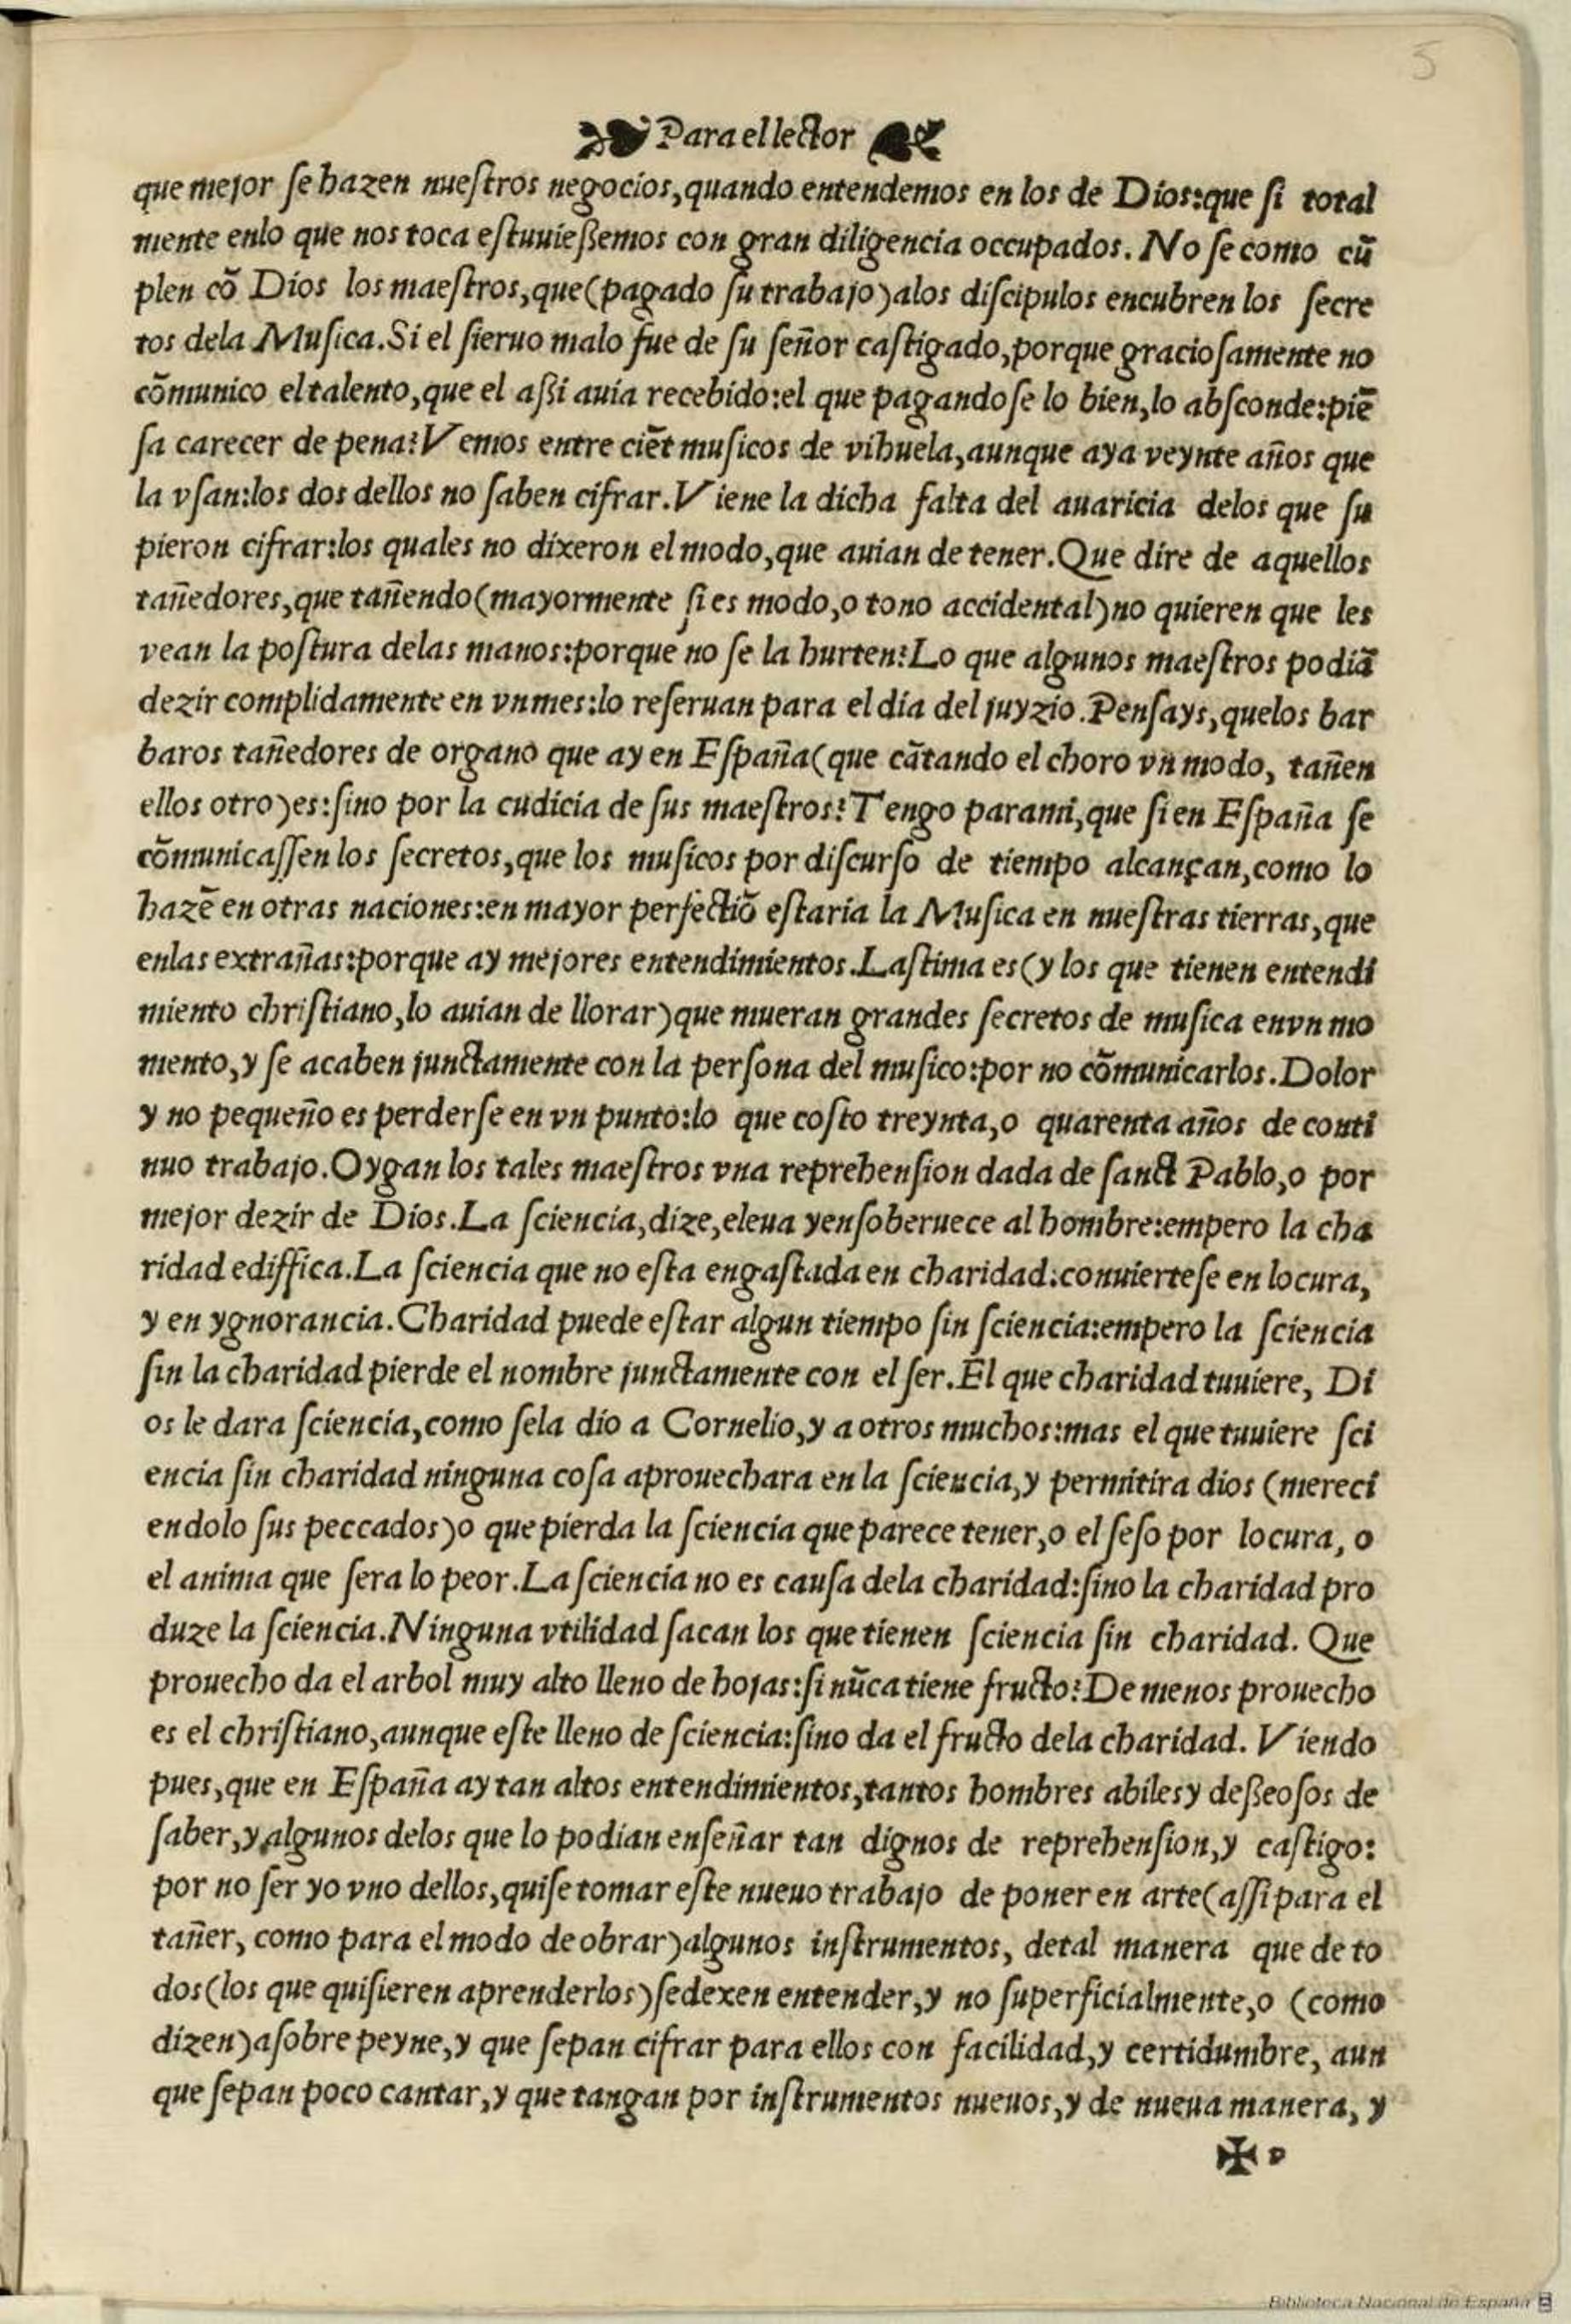 5
Para el lector
que mejor ſe hazen nueſtros negocios, quando entendemos en los de Dios: que ſi total
mente enlo que nos toca eſtuuieſſemos con gran diligencia occupados. No ſe como cū
plen cō Dios los maeſtros, que (pagado ſu trabajo) alos diſcipulos encubren los ſecre
tos dela Muſica. Si el ſieruo malo fue de ſu ſeñor caſtigado, porque gracioſamente no
cōmunico el talento, que el aſſi auia recebido: el que pagandoſe lo bien, lo abſconde: piē
ſa carecer de pena? Vemos entre ciēt muſicos de vihuela, aunque aya veynte años que
la vſan: los dos dellos no ſaben cifrar. Viene la dicha falta del auaricia delos que ſu
pieron cifrar: los quales no dixeron el modo, que auian de tener. Que dire de aquellos
tañedores, que tañendo (mayormente ſi es modo, o tono accidental) no quieren que les
vean la poſtura delas manos: porque no ſe la hurten? Lo que algunos maeſtros podiā
dezir complidamente en vn mes: lo reſeruan para el dia del juyzio. Penſays, quelos bar
baros tañedores de organo que ay en Eſpaña (que cātando el choro vn modo, tañen
ellos otro) es: ſino por la cudicia de ſus maeſtros? Tengo parami, que ſi en Eſpaña ſe
cōmunicaſſen los ſecretos, que los muſicos por diſcurſo de tiempo alcançan, como lo
hazē en otras naciones: en mayor perfectiō eſtaria la Muſica en nueſtras tierras, que
enlas extrañas: porque ay mejores entendimientos. Laſtima es (y los que tienen entendi
miento chriſtiano, lo auian de llorar) que mueran grandes ſecretos de muſica envn mo
mento, y ſe acaben junctamente con la perſona del muſico: por no cōmunicarlos. Dolor
y no pequeño es perderſe en vn punto: lo que coſto treynta, o quarenta años de conti
nuo trabajo. Oygan los tales maeſtros vna reprehenſion dada de ſanct Pablo, o por
mejor dezir de Dios. La ſciencia, dize, eleua yenſoberuece al hombre: empero la cha
ridad ediffica. La ſciencia que no eſta engaſtada en charidad: conuierteſe en locura,
y en ygnorancia. Charidad puede eſtar algun tiempo ſin ſciencia: empero la ſciencia
ſin la charidad pierde el nombre junctamente con el ſer. El que charidad tuuiere, Di
os le dara ſciencia, como ſela dio a Cornelio, y a otros muchos: mas el que tuuiere ſci
encia ſin charidad ninguna coſa aprouechara en la ſciencia, y permitira dios (mereci
endolo ſus peccados) o que pierda la ſciencia que parece tener, o el ſeſo por locura, o
el anima que ſera lo peor. La ſciencia no es cauſa dela charidad: ſino la charidad pro
duze la ſciencia. Ninguna vtilidad ſacan los que tienen ſciencia ſin charidad. Que
prouecho da el arbol muy alto lleno de hojas: ſi nūca tiene fructo? De menos prouecho
es el chriſtiano, aunque eſte lleno de ſciencia: ſino da el fructo dela charidad. Viendo
pues, que en Eſpaña ay tan altos entendimientos, tantos hombres abiles y deſſeoſos de
ſaber, y algunos delos que lo podian enſeñar tan dignos de reprehenſion, y caſtigo:
por no ſer yo vno dellos, quiſe tomar eſte nueuo trabajo de poner en arte (aſſi para el
tañer, como para el modo de obrar) algunos inſtrumentos, detal manera que de to
dos (los que quiſieren aprenderlos) ſedexen entender, y no ſuperficialmente, o (como
dizen) aſobre peyne, y que ſepan cifrar para ellos con facilidad, y certidumbre, aun
que ſepan poco cantar, y que tangan por inſtrumentos nueuos, y de nueua manera, y
✠ ꝰ
Biblioteca Nacional de España